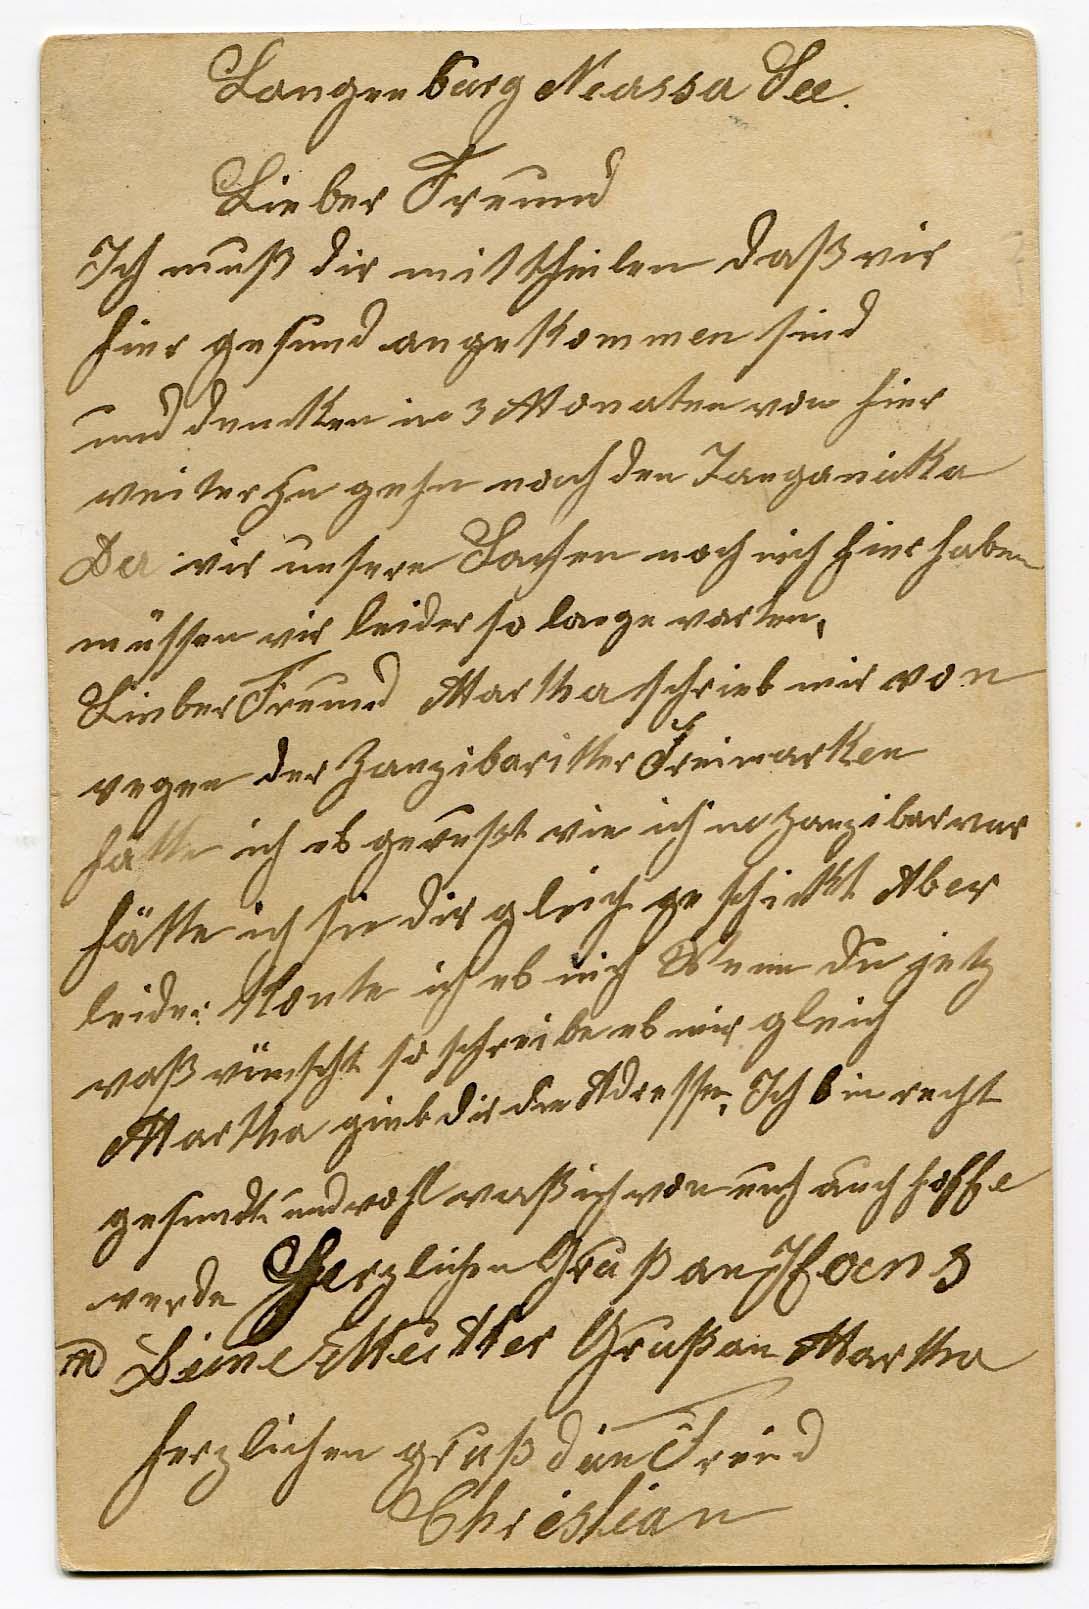 Langenburg Neassa See.
Lieber Freund
Ich muß dir mittheilen daß wir
hier gesund angekommen sind
und dencken in 3 Monaten von hier
weiter zu gehn nach den Tanganicka
Da wir unsere Sachen noch nich hier haben
müssen wir leider so lange warten.
Lieber Freund Martha schrieb mir von
wegen der Zanzibaritter Freimarken
hätte ich es gewußt wie ich in Zanzibar war
hätte ich sie dir gleich geschickt Aber
leider konte ich es nich Wenn du jetz
waß wünscht so schreibe es mir gleich
Martha giebt dir die Adresse, Ich bin recht
gesundt und wohl waß ich von euch auch hoffe
werde Herzlichen Gruß an Hans
und Deine Mutter Gruß an Martha
herzlichen gruß dein Freind
Christian